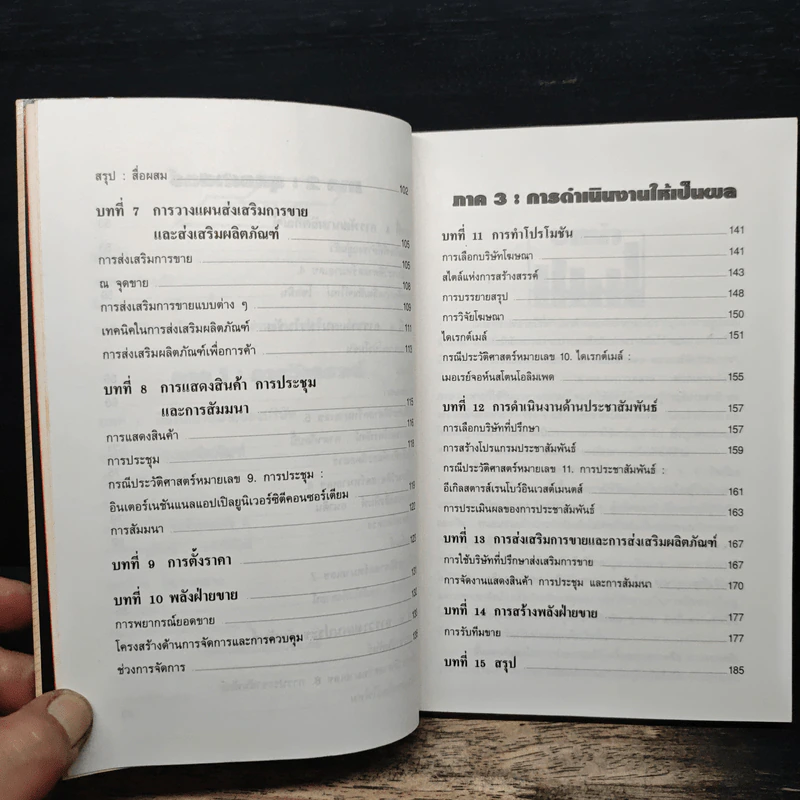 สรุป : สื่อผสม 102
บทที่ 7 การวางแผนส่งเสริมการขาย
และส่งเสริมผลิตภัณฑ์ 105
การส่งเสริมการขาย 105
ณ จุดขาย 108
การส่งเสริมการขายแบบต่าง ๆ 109
เทคนิคในการส่งเสริมผลิตภัณฑ์ 111
การส่งเสริมผลิตภัณฑ์เพื่อการค้า 113
บทที่ 8 การแสดงสินค้า การประชุม
และการสัมมนา 115
การแสดงสินค้า 116
การประชุม 118
กรณีประวัติศาสตร์หมายเลข 9. การประชุม :
อินเตอร์เนชันแนลแอปเปิลยูนิเวอร์ซิตีคอนซอร์เตียม 119
การสัมมนา 120
บทที่ 9 การตั้งราคา 125
บทที่ 10 พลังฝ่ายขาย 131
การพยากรณ์ยอดขาย 132
โครงสร้างด้านการจัดการและการควบคุม
ช่วงการจัดการ
ภาค 3 : การดำเนินงานให้เป็นผล
บทที่ 11 การทำโปรโมชัน 141
การเลือกบริษัทโฆษณา 141
สไตล์แห่งการสร้างสรรค์ 143
การบรรยายสรุป 148
การวิจัยโฆษณา 150
ไดเรกต์เมล์ 151
กรณีประวัติศาสตร์หมายเลข 10. ไดเรกต์เมล์ :
เมอเรย์จอห์นสโตนโอลิมเพต 155
บทที่ 12 การดำเนินงานด้านประชาสัมพันธ์ 157
การเลือกบริษัทที่ปรึกษา 157
การสร้างโปรแกรมประชาสัมพันธ์ 159
กรณีประวัติศาสตร์หมายเลข 11. การประชาสัมพันธ์ :
อีเกิลสตาร์ส์เรนโบว์อินเวสต์เมนตส์ 161
การประเมินผลของการประชาสัมพันธ์ 163
บทที่ 13 การส่งเสริมการขายและการส่งเสริมผลิตภัณฑ์ 167
การใช้บริษัทที่ปรึกษาส่งเสริมการขาย 167
การจัดงานแสดงสินค้า การประชุม และการสัมมนา 170
บทที่ 14 การสร้างพลังฝ่ายขาย 177
การรับทีมขาย 177
บทที่ 15 สรุป 185